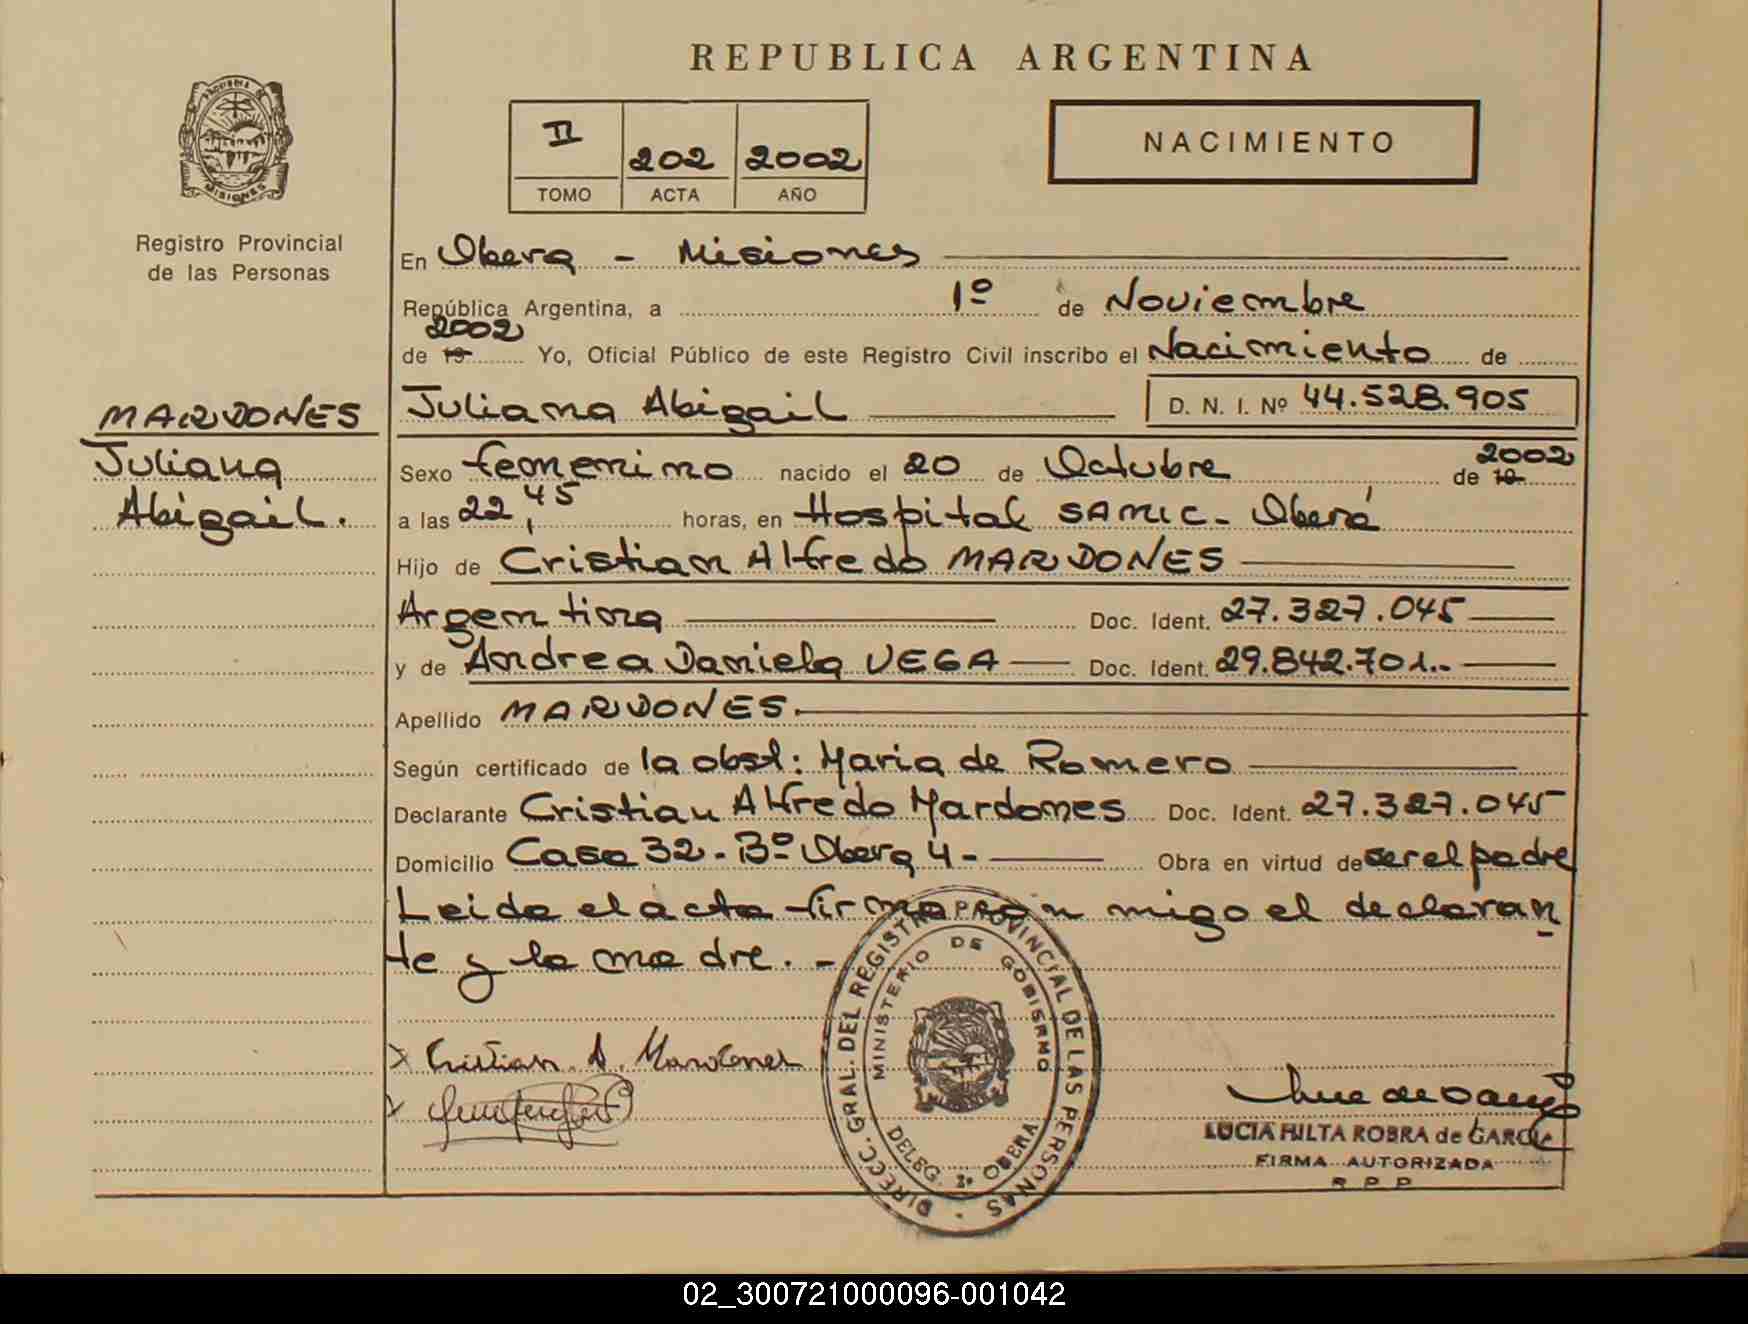 REPUBLICA ARGENTINA
II 202 2002
TOMO ACTA AÑO
NACIMIENTO
PROVINCIA DE
MISIONES
Registro Provincial
de las Personas
En Obera - Misiones
República Argentina, a 1º de Noviembre
2002
de 19 Yo, Oficial Público de este Registro Civil inscribo el Nacimiento de
Juliana Abigail D. N. I. Nº 44.528.905
MARDONES
Juliana
Abigail.
Sexo femenino nacido el 20 de Octubre de 19 2002
a las 22,45 horas, en Hospital SAMIC - Oberá
Hijo de Cristian Alfredo MARDONES
Argentina Doc. Ident. 27.327.045
y de Andrea Daniela VEGA Doc. Ident. 29.842.701.-
Apellido MARDONES.
Según certificado de la obst: Maria de Romero
Declarante Cristian Alfredo Mardones Doc. Ident. 27.327.045
Domicilio Casa 32 - Bº Obera 4 - Obra en virtud de ser el padre
Leida el acta firma con migo el declaran
te y la madre. -
Cristian. A. Mardones
DIRECC. GRAL. DEL REGISTRO PROVINCIAL DE LAS PERSONAS -
MINISTERIO DE GOBIERNO
MISIONES
DELEG. OBERA
LUCIA HILTA ROBRA de GARCIA
FIRMA AUTORIZADA
R P P
02_300721000096-001042